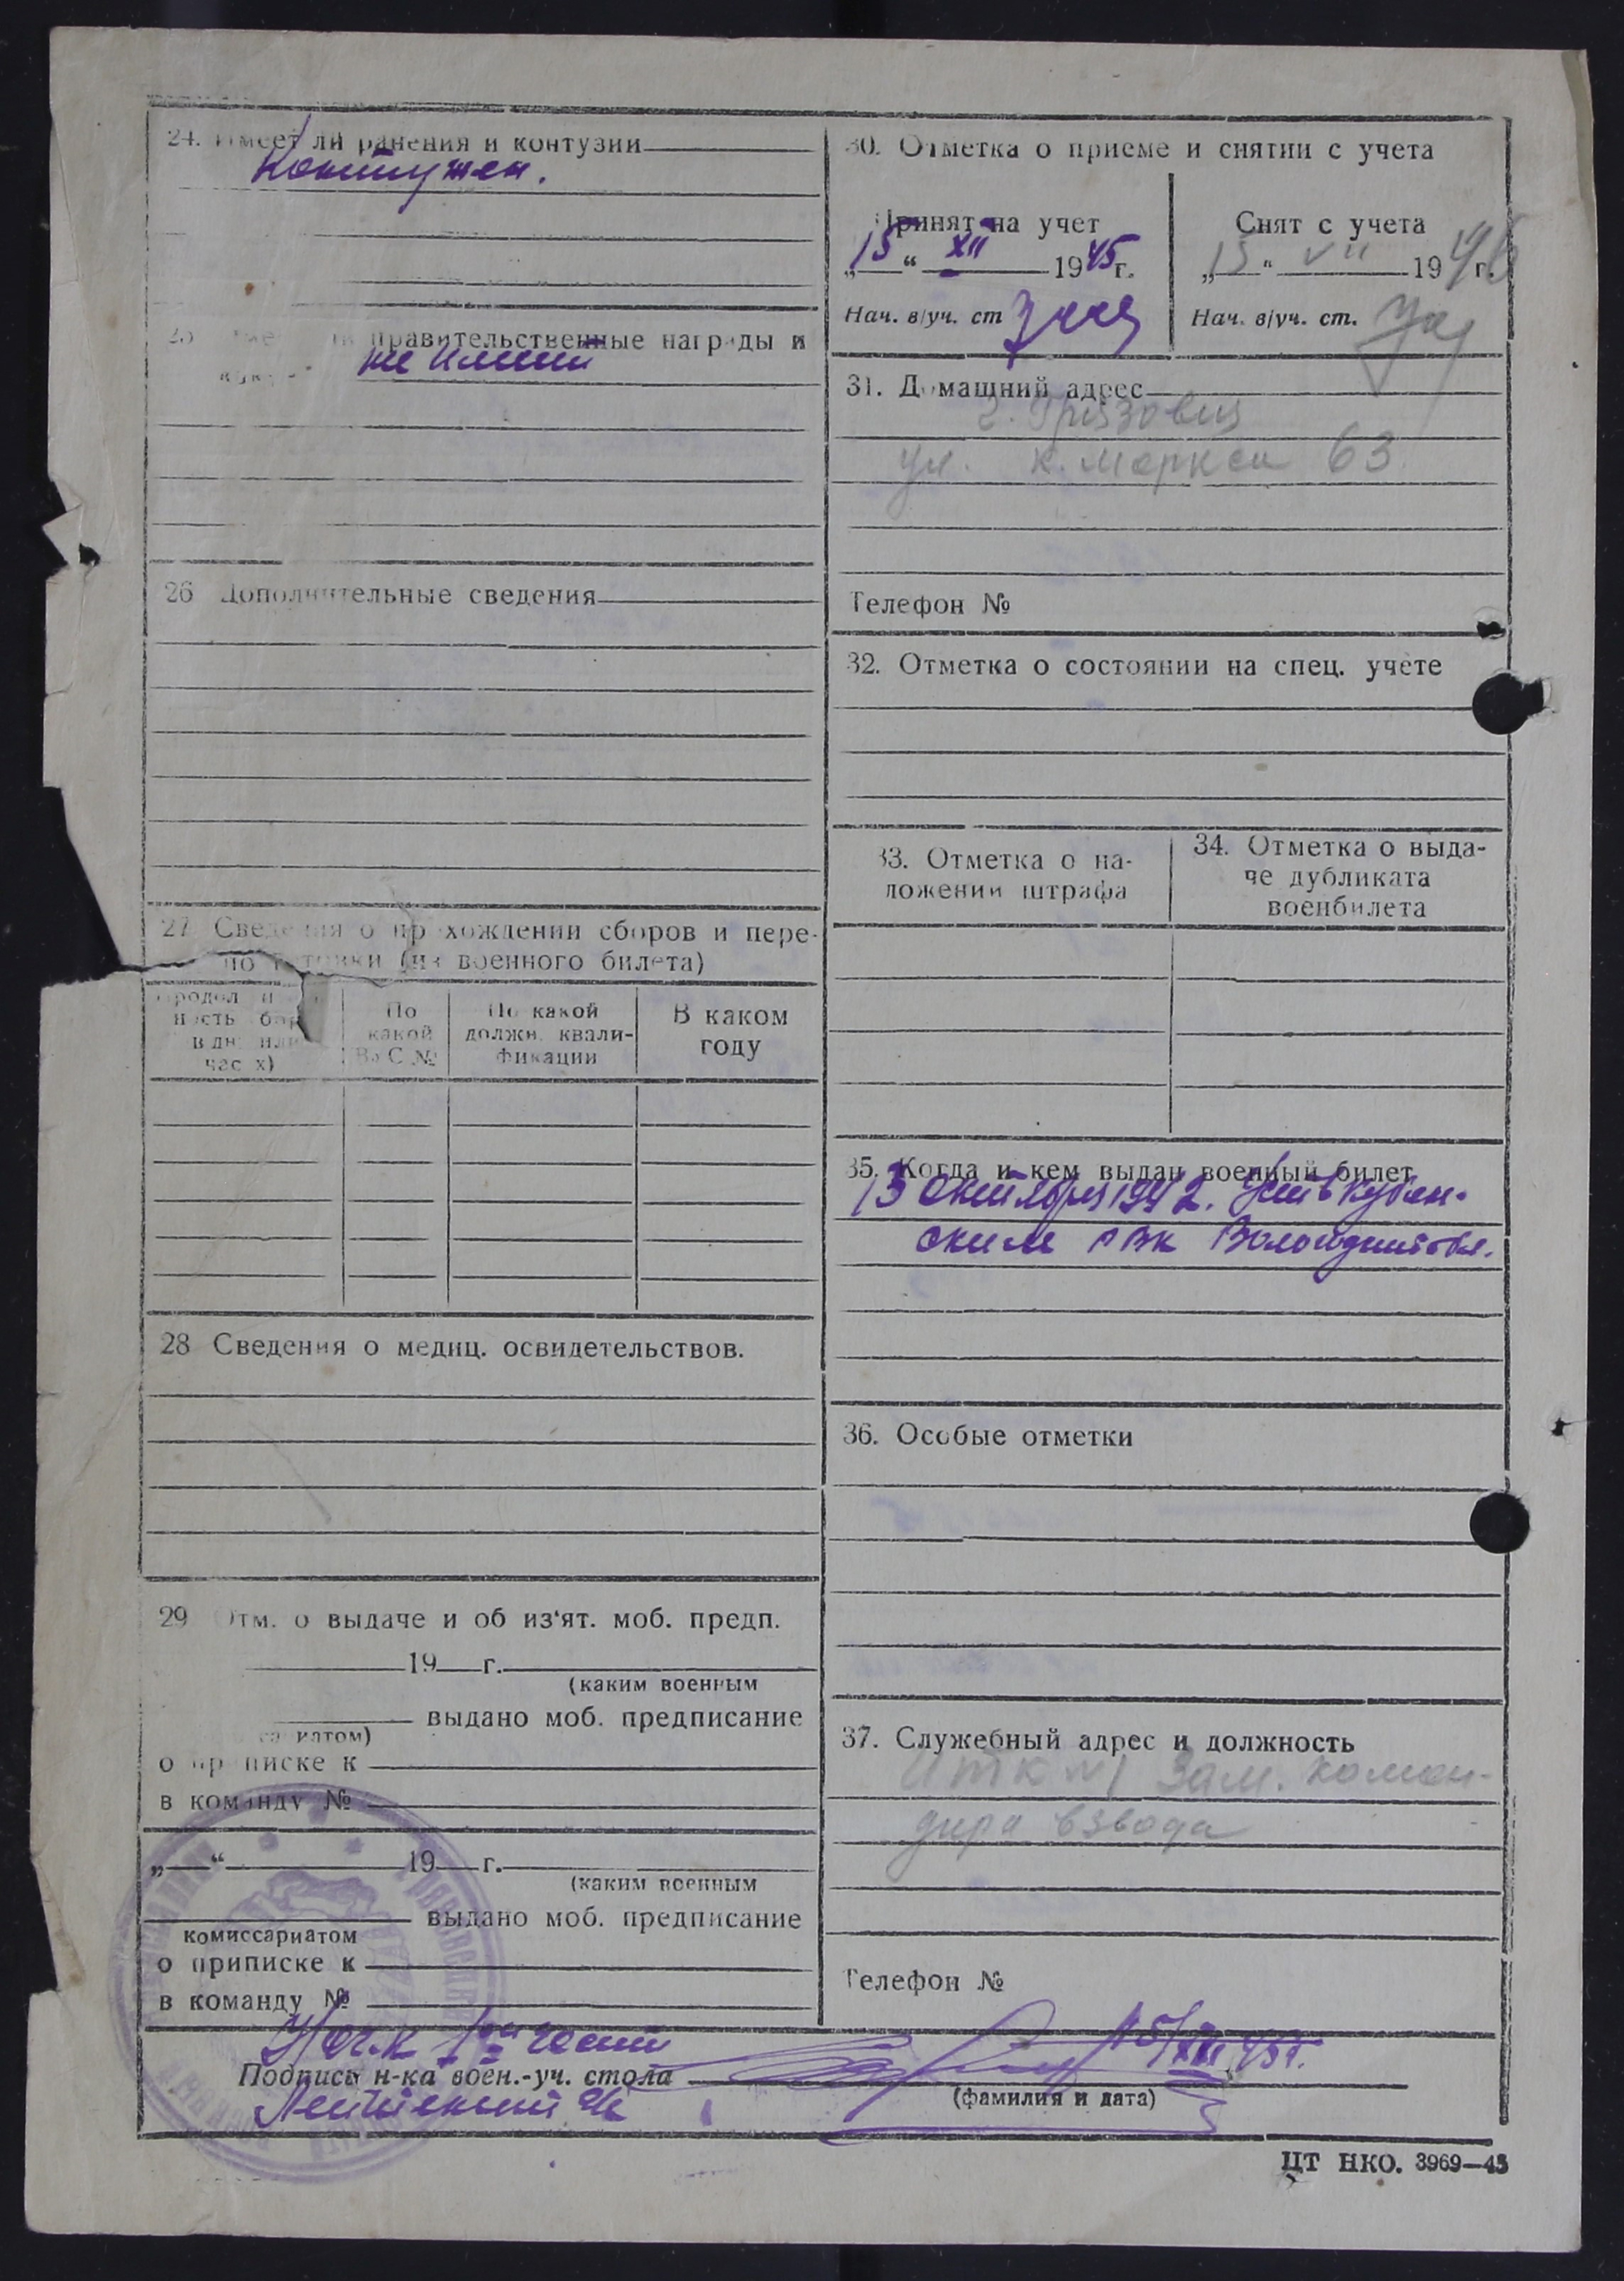 24. Имеет ли ранения и контузии
Контужен.
25 правительственные награды и
не имеет
26 Дополнительные сведения
27 Сведения о прохождении сборов и пере-
подготовки (из военного билета)
По какой ВуС №
По какой должн. квали-фикации
В каком году
28 Сведения о медиц. освидетельствов.
29 Отм. о выдаче и об из‘ят. моб. предп.
19 г.
(каким военным
выдано моб. предписание
о приписке к
в команду №
„ “ 19 г.
(каким военным
выдано моб. предписание
комиссариатом
о приписке к
в команду №
30. Отметка о приеме и снятии с учета
Принят на учет
„15“ XII 1945г.
Нач. в/уч. ст
Снят с учета
„15“ VII 1946 г.
Нач. в/уч. ст.
31. Домашний адрес
г. Грязовец
ул. К. Маркса 63
Телефон №
32. Отметка о состоянии на спец. учете
33. Отметка о на-
ложении штрафа
34. Отметка о выда-
че дубликата
военбилета
35. Когда и кем выдан военный билет
13 октября 1942. Усть Кубин-
ским РВК Вологодской обл.
36. Особые отметки
37. Служебный адрес и должность
ИТК №1 Зам. коман-
дира взвода
Телефон №
Нач-к 1ой части 15/XII 45г.
Подпись н-ка воен.-уч. стола
(фамилия и дата)
Лейтенант
ЦТ НКО. 3969—45